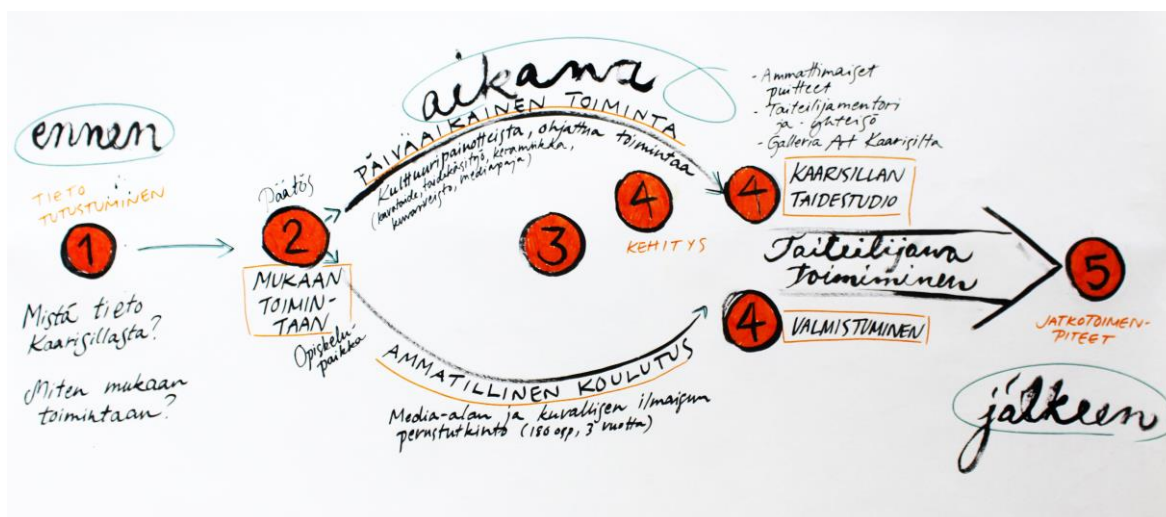 ennen
TIETO
TUTUSTUMINEN
1
Mistä tieto
Kaarisillasta?
Miten mukaan
toimintaan?
Päätös
2
MUKAAN
TOIMIN-
TAAN
Opiskelu-
paikka
aikana
PÄIVÄAIKAINEN TOIMINTA
Kulttuuripainotteista, ohjattua toimintaa
(kuvataide, taidekäsityö, keramiikka,
kuvanveisto, mediapaja)
3
4
KEHITYS
AMMATILLINEN KOULUTUS
Media-alan ja kuvallisen ilmaisun
perustutkinto (180 osp, 3 vuotta)
- Ammattimaiset
puitteet
- Taiteilijamentori
ja -yhteisö
- Galleria Art Kaarisilta
4
KAARISILLAN
TAIDESTUDIO
Taiteilijana
toimiminen
4
VALMISTUMINEN
5
JATKOTOIMEN-
PITEET
jälkeen